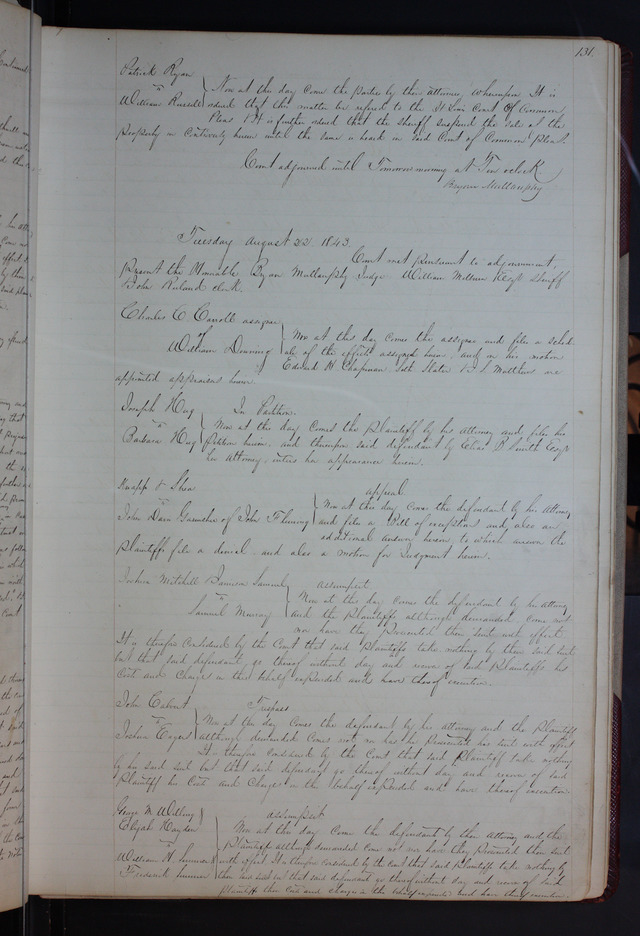 131.
Patrick Ryan
vs
William Russell
Now at this day come the parties by their attorneys, whereupon It is
ordered that this matter be referred to the St Louis Court Of Common
Pleas & It is further ordered that the sheriff suspend the sale of the
property in Controversy herein until the same is heard in said Court of Common Pleas.
Court adjourned until Tomorrow morning at Ten oclock
Bryan Mullanphy
Tuesday August 22 1843.
Court met pursuant to adjournment,
Present the Honorable Bryan Mullanphy Judge William Milburn Esqr Sheriff
John Ruland clerk.
Charles C Carroll assignee
of
William Downing
Now at this day comes the assignee and files a sched
ule of the effects assigned herein, and on his motion
Edward H Chapman Slater & Matthews are
appointed appraisers herein.
Joseph Hug
vs
Barbara Hug
In Partition.
Now at this day comes the Plaintiff by his Attorney and files his
Petition herein, and thereupon said defendant by Elias B Smith Esqr
her Attorney, enters her appearance herein.
Knapp & Shea
vs
John Dan Garnishee of John Fleming
appeal
Now at this day comes the defendant by his Attorney
and files a Bill of exceptions and also an
additional answer herein, to which answer the
Plaintiffs file a denial and also a motion for Judgment herein.
Joshua Mitchell Samuels
vs
Samuel Murray
assumpsit
Now at this day comes the defendant by his attorney
and the Plaintiffs although demanded come not
nor have they prosecuted their suit with effect
It is therefore Considered by the Court that said Plaintiffs take nothing by their said suit
but that said defendant go thereof without day and recover of said Plaintiffs his
Costs and Charges in this behalf expended and have thereof execution.
John Calvert
vs
Joshua Eagers
Trespass
Now at this day comes the defendant by his attorney and the Plaintiff
although demanded comes not nor has he prosecuted his suit with effect
It is therefore Considered by the Court that said Plaintiff take nothing
by his said suit but that said defendant go thereof without day and recover of said
Plaintiff his Costs and Charges in this behalf expended and have thereof execution.
George M Willing
Elijah Hayden
vs
William H Sumner
Frederick Sumner
assumpsit
Now at this day Come the defendants by their Attorney and the
Plaintiffs although demanded come not nor have they prosecuted their suit
with effect It is therefore Considered by the Court that said Plaintiffs take nothing by
their said suit but that said defendants go thereof without day and recover of said
Plaintiffs their Costs and charges in this behalf expended and have thereof execution.